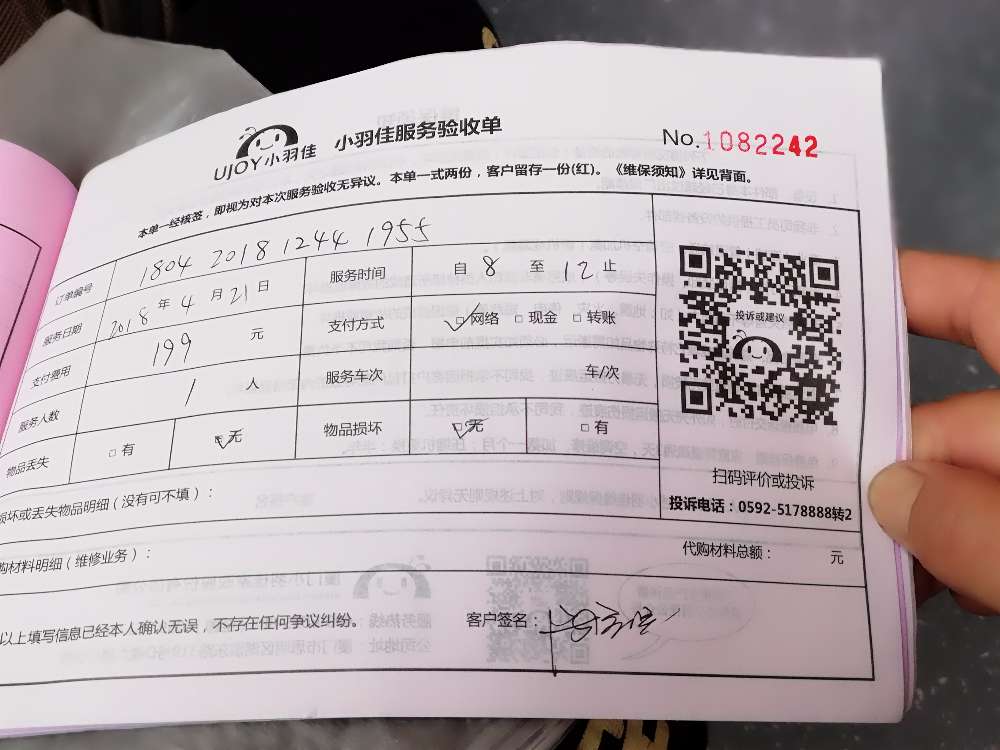 UJOY小羽佳 小羽佳服务验收单 No.1082242
本单一经核签，即视为对本次服务验收无异议。本单一式两份，客户留存一份(红)。《维保须知》详见背面。
订单编号 1804 2018 1244 1955
服务日期 2018年4月21日 服务时间 自8至12止
支付费用 199元 支付方式 ☑网络 □现金 □转账
服务人数 1人 服务车次 车/次
物品丢失 □有 ☑无 物品损坏 ☑无 □有
投诉或建议
扫码评价或投诉
投诉电话：0592-5178888转2
损坏或丢失物品明细（没有可不填）：
购材料明细（维修业务）： 代购材料总额： 元
以上填写信息已经本人确认无误，不存在任何争议纠纷。 客户签名：